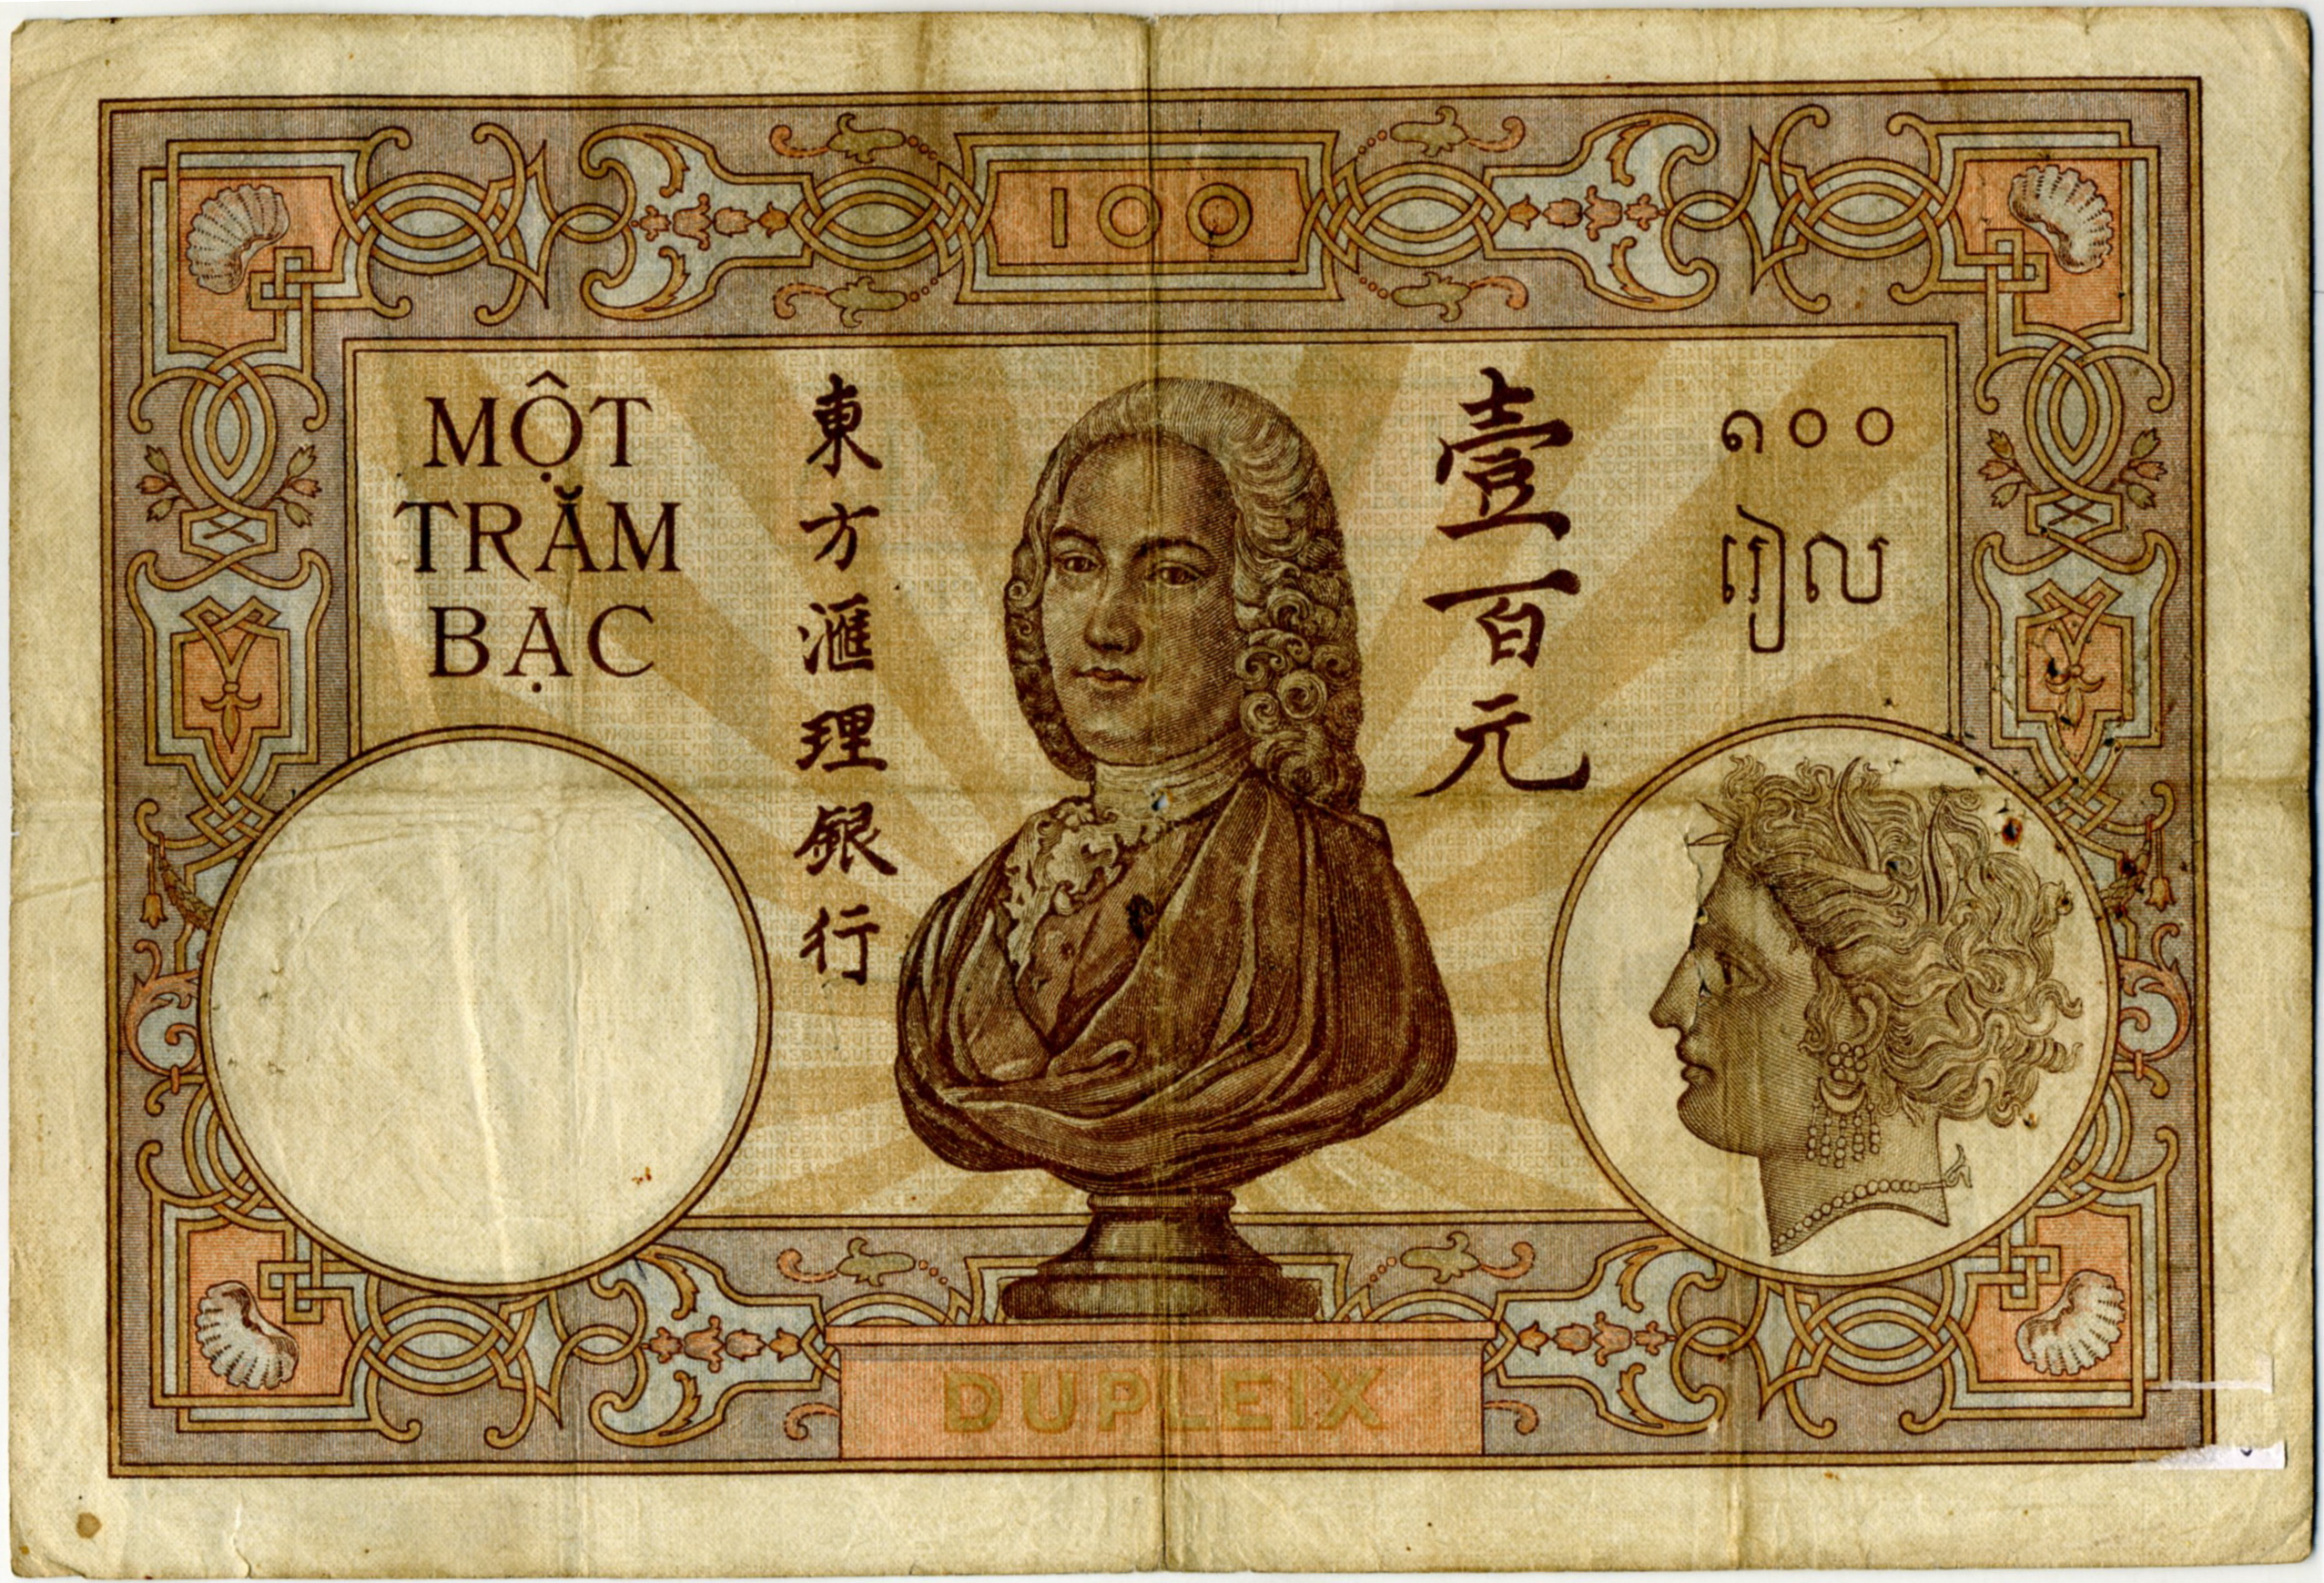 100
MỘT
TRĂM
BẠC
東方滙理銀行
壹百元
១០០
រៀល
DUPLEIX